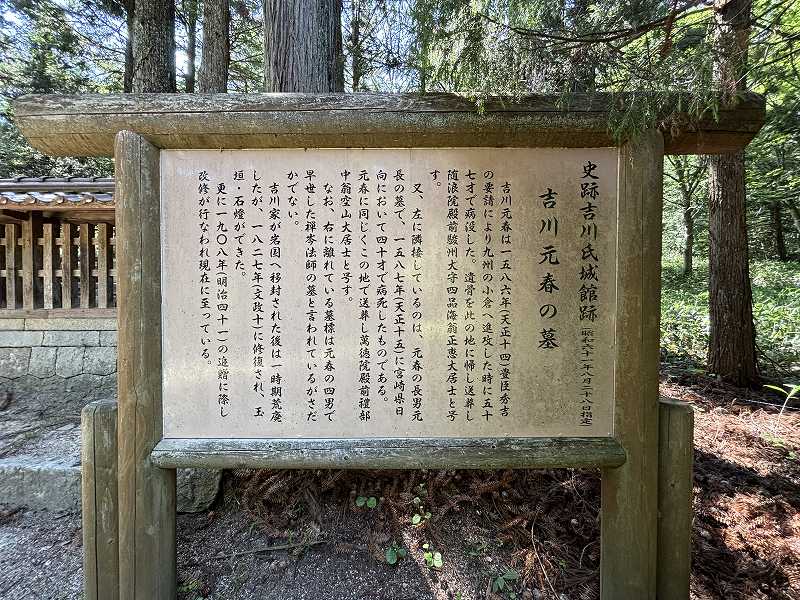 史跡吉川氏城館跡（昭和六十一年八月二十八日指定）
吉川元春の墓
吉川元春は一五八六年(天正十四)豊臣秀吉
の要請により九州の小倉へ進攻した時に五十
七才で病没した。遺骨を此の地に帰し送葬し
随浪院殿前駿州大守四品海翁正恵大居士と号
す。
又、左に隣接しているのは、元春の長男元
長の墓で、一五八七年(天正十五)に宮崎県日
向において四十才で病死したものである。
元春に同じくこの地で送葬し萬徳院殿前禮部
中翁空山大居士と号す。
なお、右に離れている墓標は元春の四男で
早世した禅岑法師の墓と言われているがさだ
かでない。
吉川家が岩国へ移封された後は一時期荒廃
したが、一八二七年(文政十)に修復され、玉
垣・石燈ができた。
更に一九〇八年(明治四十一)の追贈に際し
改修が行なわれ現在に至っている。